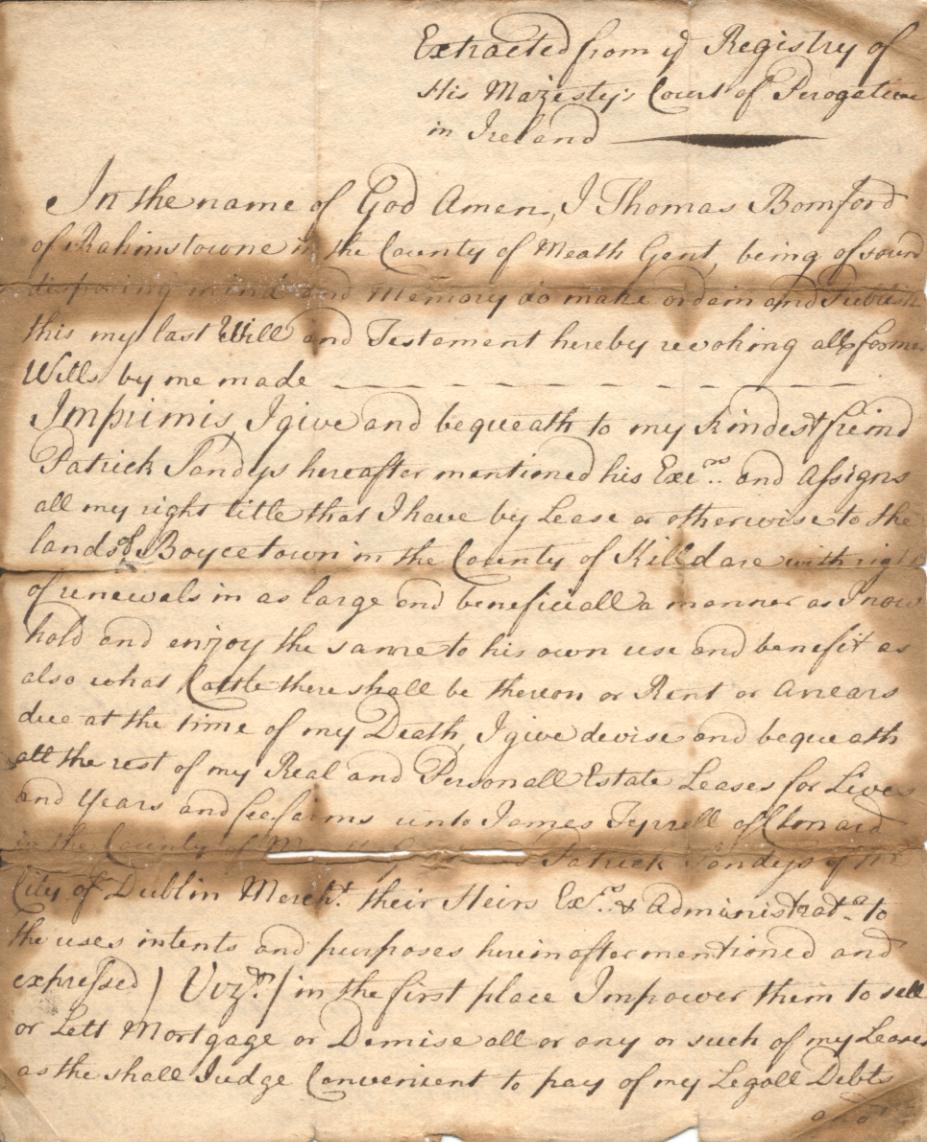 Extracted from ye Registry of
His Majesty's Court of Perogative
in Ireland
In the name of God Amen, I Thomas Bomford
of Rahinstowne in the County of Meath Gent, being of sound
disposing mind and Memory do make ordain and Publish
this my last Will and Testament hereby revoking all former
Wills by me made
Imprimis I give and bequeath to my Kindest freind
Patrick Sandys hereafter mentioned his Exers and Assigns
all my right title that I have by Lease or otherwise to the
lands of Boycetown in the County of Killdare with right
of renewals in as large and beneficiall a manner as I now
hold and enjoy the same to his own use and benefit as
also what Cattle there shall be thereon or Rent or Arrears
due at the time of my Death, I give devise and bequeath
all the rest of my Real and Personall Estate Leases for Lives
and Years and feefarms unto James Tyrrell of Clonard
in the County of Patrick Sandys of the
City of Dublin Mercht their Heirs Exrs & Administratrs to
the uses intents and purposes hereinafter mentioned and
expressed ) Vizt. / in the first place Impower them to sell
or Lett Mortgage or Demise all or any or such of my Leases
as the shall Judge Convenient to pay of my Legall Debts